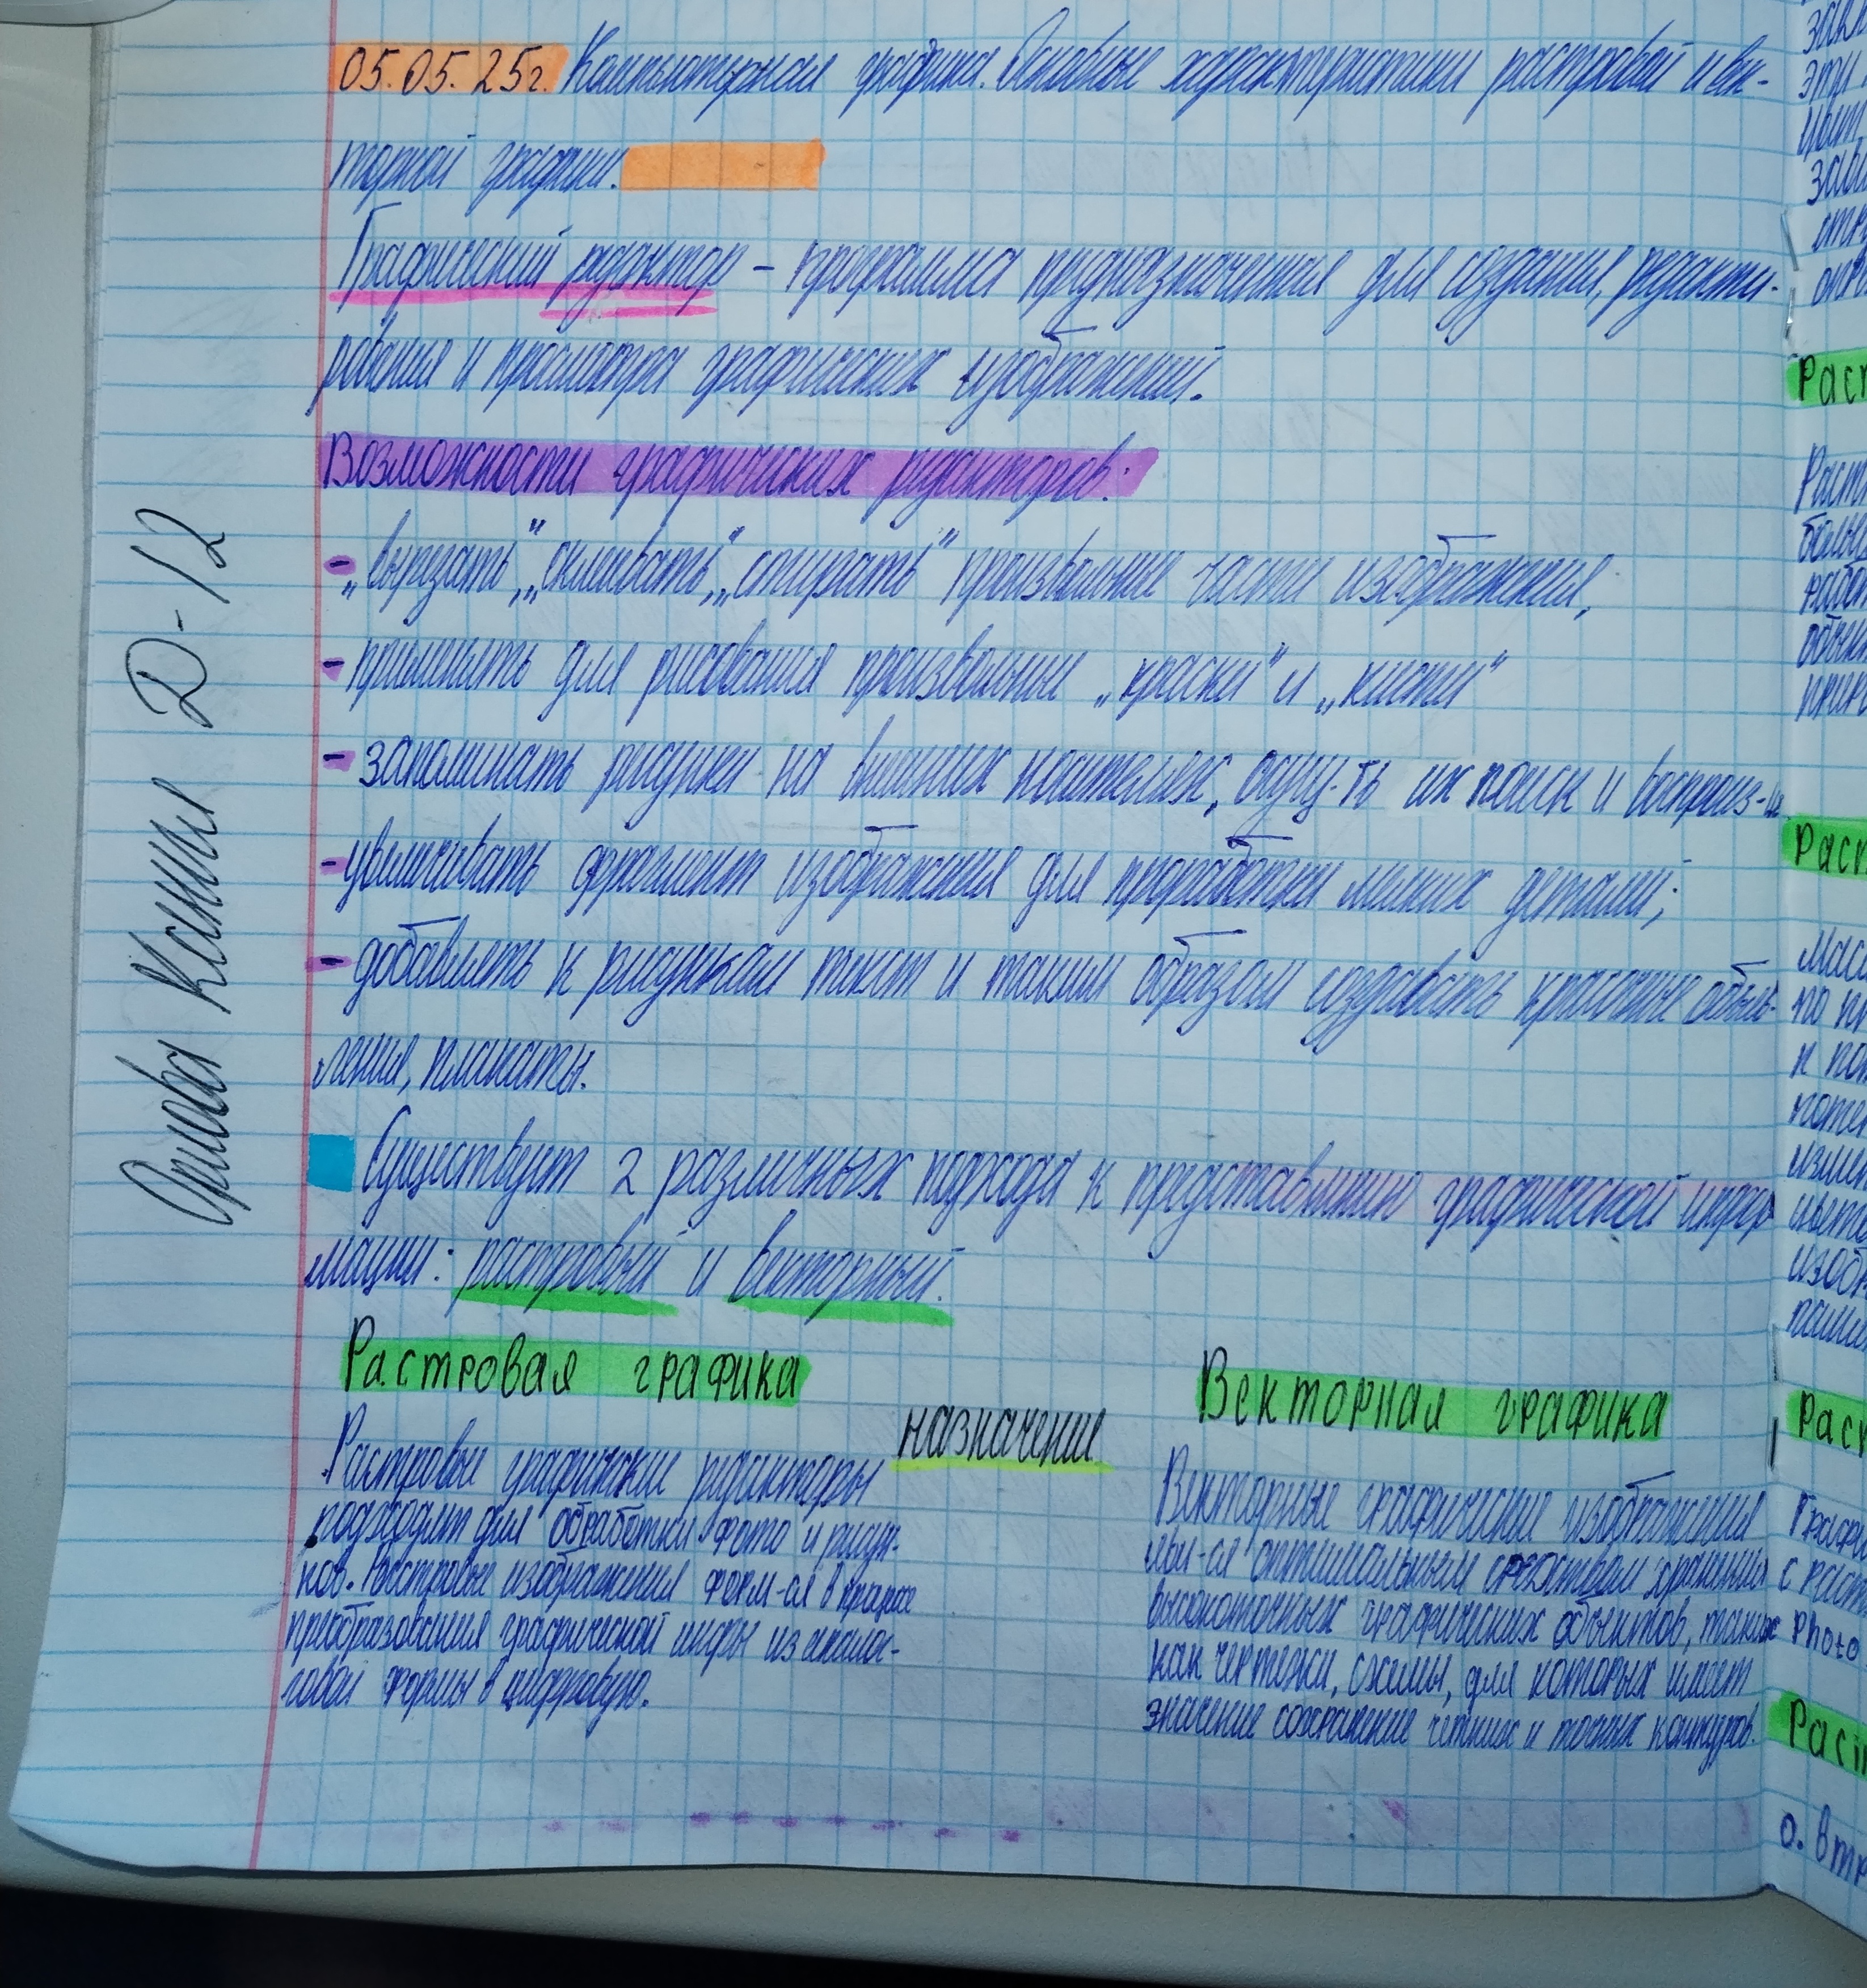 05.05.25г. Компьютерная графика. Основные характеристики растровой и век-
торной графики.
Графический редактор – программа предназначенная для создания, редакти-
рования и просмотра графических изображений.
Возможности графических редакторов:
- „вырезать", „склеивать", „стирать" произвольные части изображения,
- применять для рисования произвольные „краски" и „кисти"
- запоминать рисунки на внешних носителях, осущ-ть их поиск и воспроиз-ие
- увеличивать фрагмент изображения для проработки мелких деталей;
- добавлять к рисункам текст и таким образом создавать красочные объяв-
ления, плакаты.
Существует 2 различных подхода к представлению графической инфор
мации: растровый и векторный.
Растровая графика
Векторная графика
назначение
Растровые графические редакторы
подходят для обработки фото и рисун-
ков. Растровые изображения форм-ся в процессе
преобразования графической инфы из анало-
говой формы в цифровую.
Векторные графические изображения
явл-ся оптимальным средством хранения
высокоточных графических объектов, таких
как чертежи, схемы, для которых имеет
значение сохранение четких и точных контуров.
Ксения Д-12
Раст
Раст
Photo